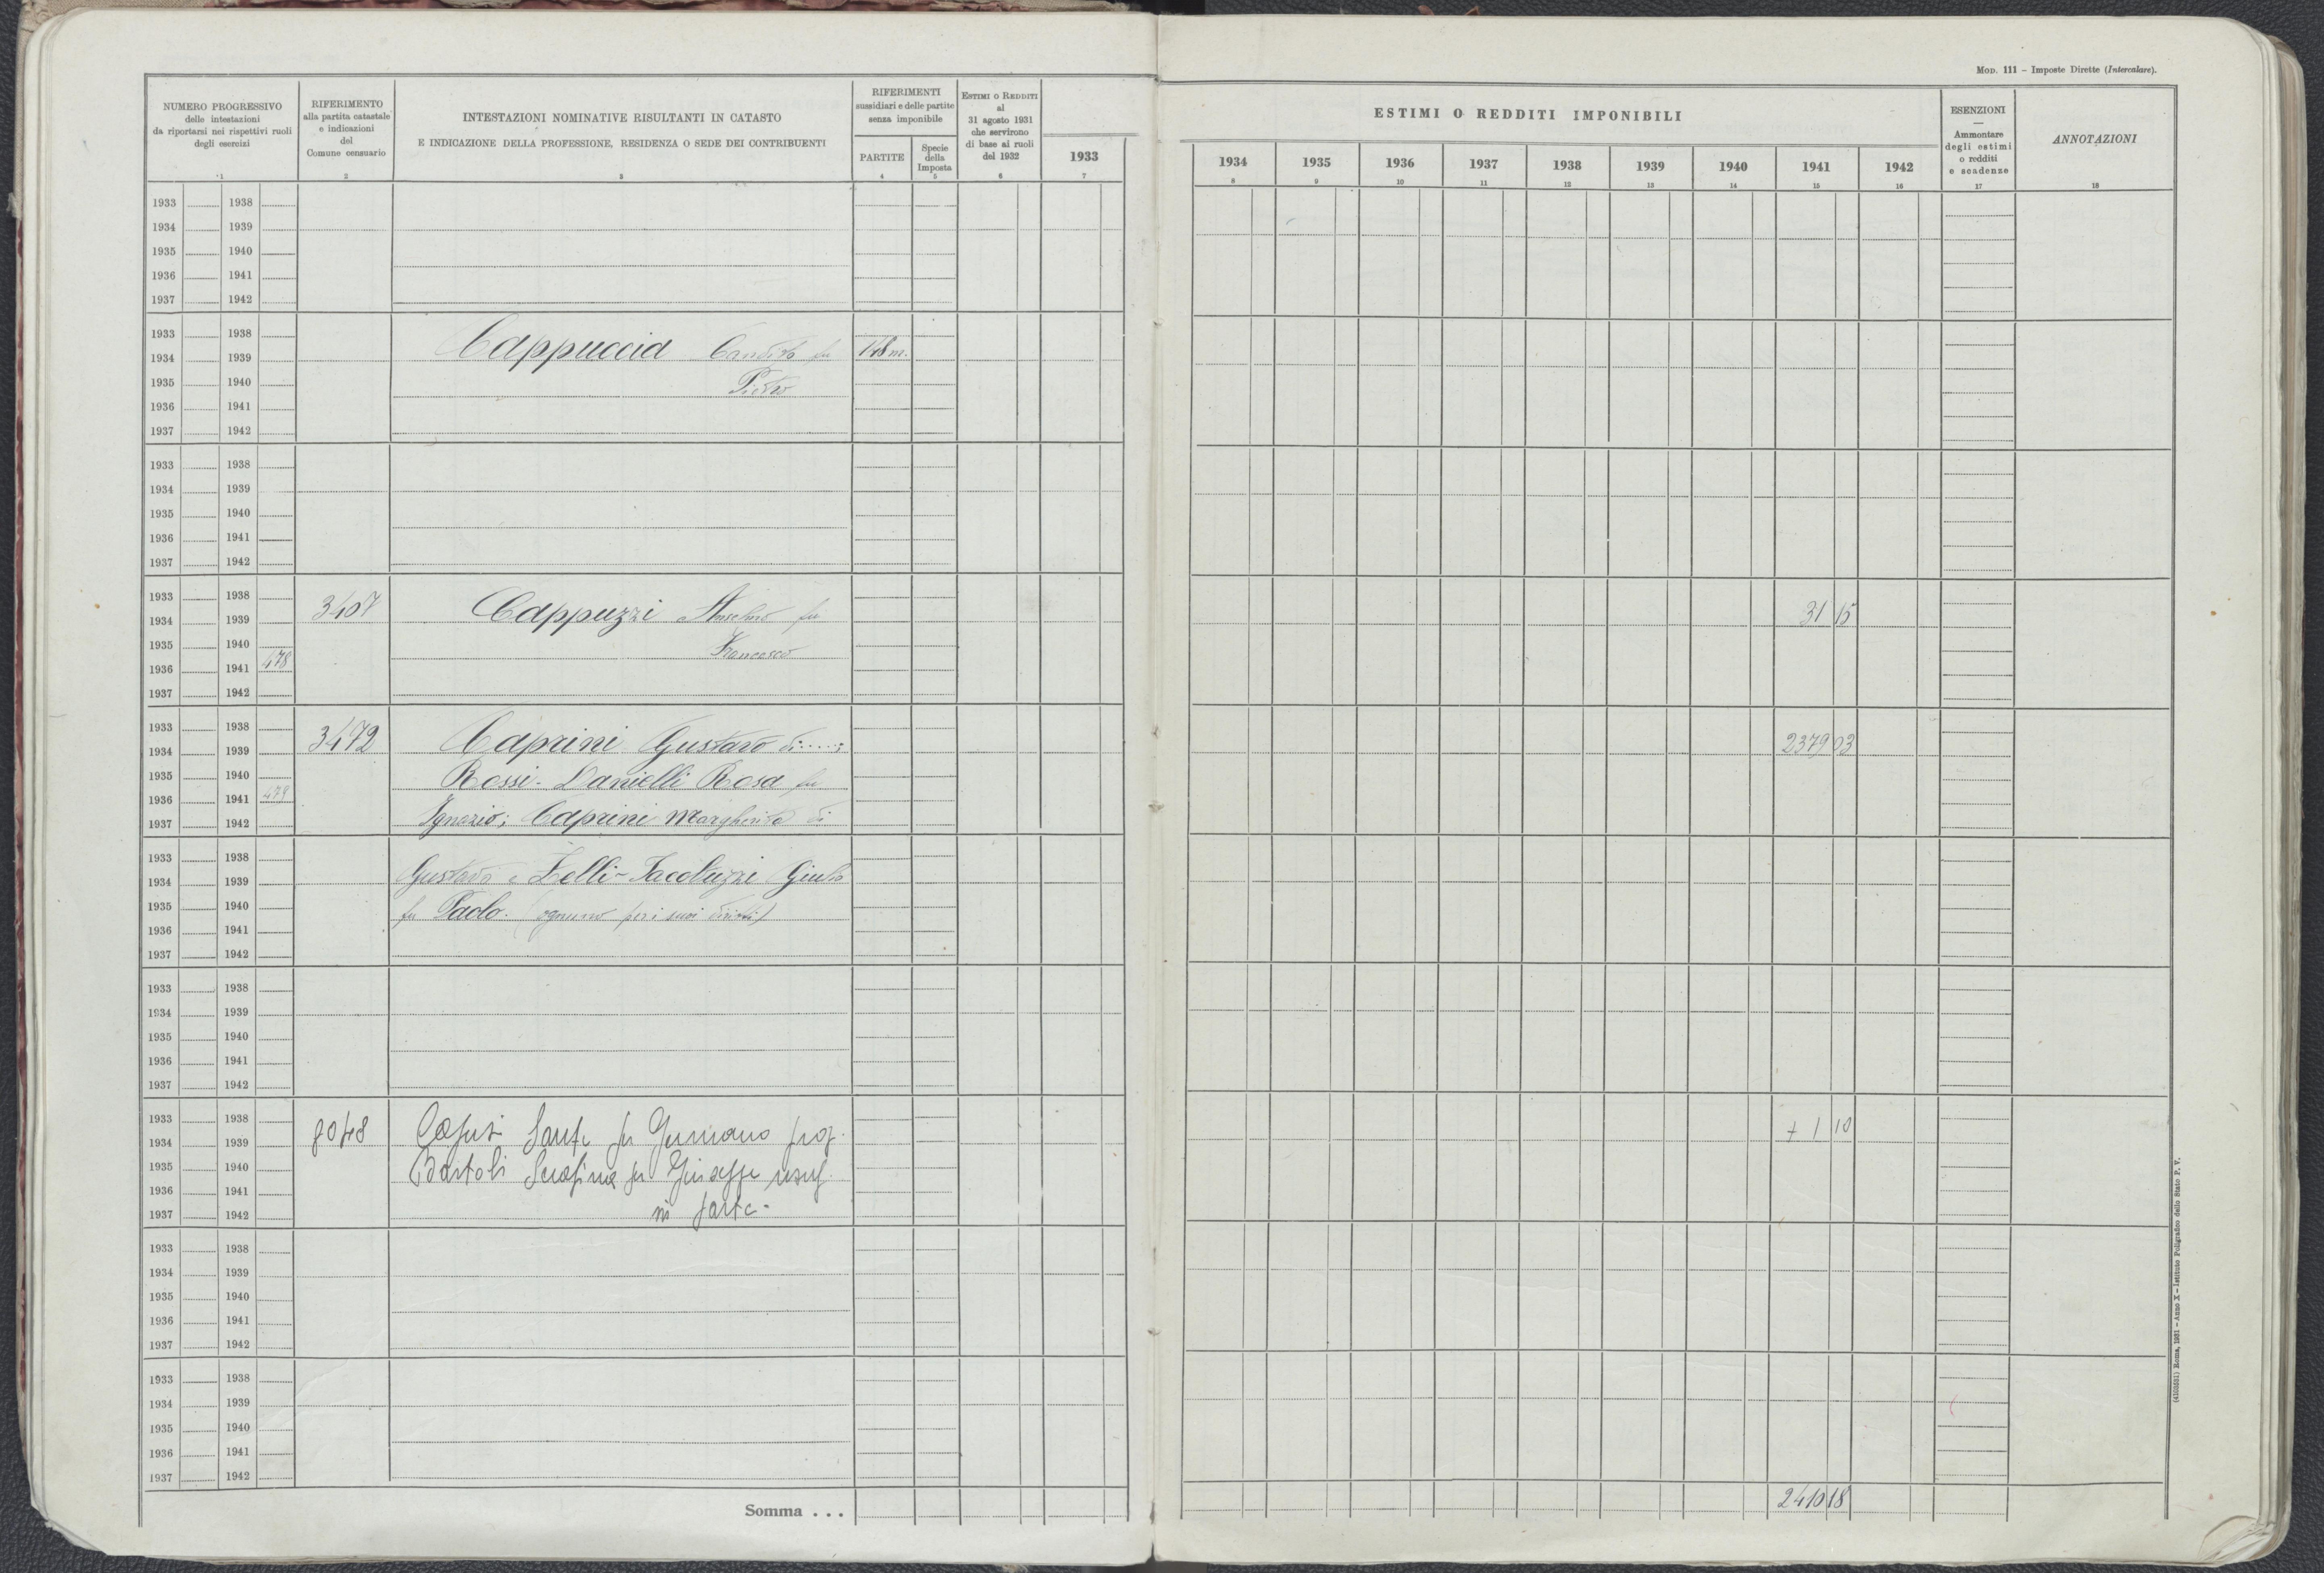 MOD. 111 – Imposte Dirette (Intercalare).
NUMERO PROGRESSIVO
delle intestazioni
da riportarsi nei rispettivi ruoli
degli esercizi
1
RIFERIMENTO
alla partita catastale
e indicazioni
del
Comune censuario
2
INTESTAZIONI NOMINATIVE RISULTANTI IN CATASTO
E INDICAZIONE DELLA PROFESSIONE, RESIDENZA O SEDE DEI CONTRIBUENTI
3
RIFERIMENTI
sussidiari e delle partite
senza imponibile
PARTITE
4
Specie
della
Imposta
5
ESTIMI O REDDITI
al
31 agosto 1931
che servirono
di base ai ruoli
del 1932
6
ESTIMI O REDDITI IMPONIBILI
1933 1934 1935 1936 1937 1938 1939 1940 1941 1942
7 8 9 10 11 12 13 14 15 16
ESENZIONI
—
Ammontare
degli estimi
o redditi
e scadenze
17
ANNOTAZIONI
18
1933 1938
1934 1939
1935 1940
1936 1941
1937 1942
1933 1938
1934 1939 Cappuccia Candido fu 148 m.
1935 1940 Pietro
1936 1941
1937 1942
1933 1938
1934 1939
1935 1940
1936 1941
1937 1942
1933 1938
1934 1939 3407 Cappuzzi Anselmo fu 31 15
1935 1940 Francesco
1936 1941 478
1937 1942
1933 1938
1934 1939 3472 Caprini Gustavo di....; 2379 03
1935 1940 Rossi-Danielli Rosa fu
1936 1941 479
1937 1942 Ignazio; Caprini Margherita di
1933 1938
1934 1939 Gustavo e Zelli-Jacobuzzi Giulio
1935 1940 fu Paolo. (ognuno per i suoi diritti)
1936 1941
1937 1942
1933 1938
1934 1939
1935 1940
1936 1941
1937 1942
1933 1938
1934 1939 8048 Sante fu Germano prop. + 1 10
1935 1940 Bartoli Serafina fu Giuseppe usuf.
1936 1941
1937 1942 in parte.
1933 1938
1934 1939
1935 1940
1936 1941
1937 1942
1933 1938
1934 1939
1935 1940
1936 1941
1937 1942
Somma . . . 2410 18
(4103531) Roma, 1931 – Anno X – Istituto Poligrafico dello Stato P. V.